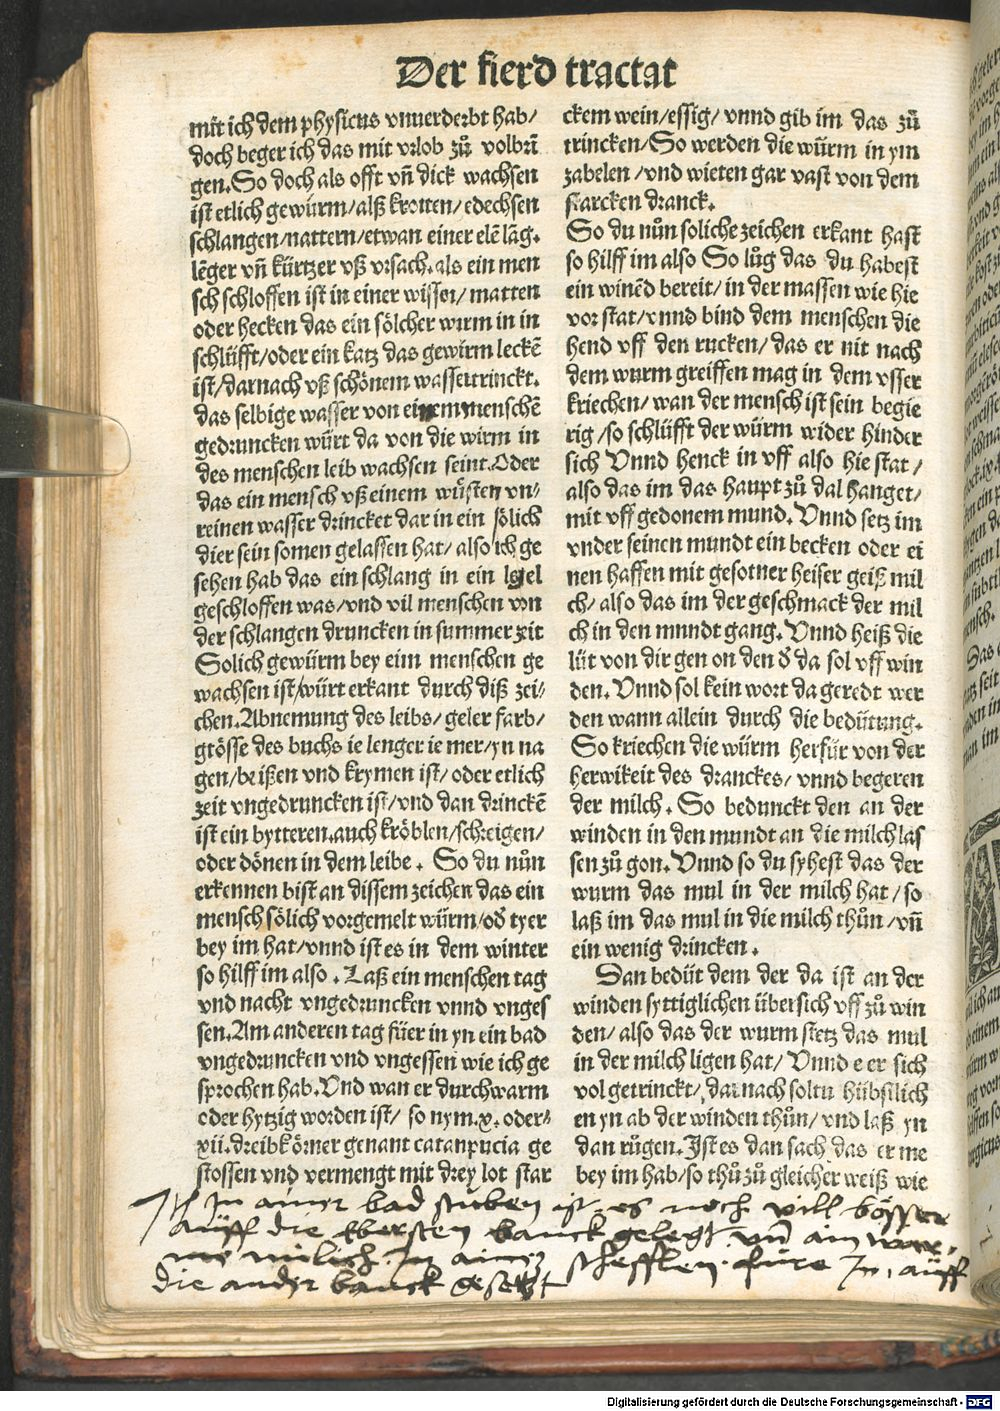 Der fierd tractat
mit ich dem physicus vnuerderbt hab/
doch beger ich das mit vrlob zů volbrī
gen. So doch als offt vñ dick wachsen
ist etlich gewürm/alß krotten/edechsen
schlangen/nattern/etwan einer elē lāg.
lēger vñ kürtzer vß vrsach. als ein men
sch schloffen ist in einer wissen/matten
oder hecken das ein sölcher wurm in in
schlüfft/oder ein katz das gewirm leckē
ist/darnach vß schönem wasser trinckt.
das selbige wasser von einem menschē
gedruncken würt da von die wirm in
des menschen leib wachsen seint. Oder
das ein mensch vß einem wüsten vn-
reinen wasser drincket dar in ein sölich
dier sein somen gelassen hat/also ich ge
sehen hab das ein schlang in ein legel
geschloffen was/vnd vil menschen von
der schlangen druncken in summer zeit
Solich gewürm bey eim menschen ge
wachsen ist/würt erkant durch diß zei-
chen. Abnemung des leibs/geler farb/
grösse des buchs ie lenger ie mer/yn na
gen/beißen vnd krymen ist/oder etlich
zeit vngedruncken ist/vnd dan drinckē
ist ein bytteren. auch kröblen/schreigen/
oder dönen in dem leibe. So du nůn
erkennen bist an dissem zeichen das ein
mensch sölich vorgemelt würm/oð tyer
bey im hat/vnnd ist es in dem winter
so hilff im also. Laß ein menschen tag
vnd nacht vngedruncken vnnd vnges
sen. Am anderen tag füer in yn ein bad
vngedruncken vnd vngessen wie ich ge
sprochen hab. Vnd wan er durchwarm
oder hytzig worden ist/ so nym .x. oder
xii. dreibkörner genant catanpucia ge
stossen vnd vermengt mit drey lot star
ckem wein/essig/ vnnd gib im das zů
trincken/So werden die würm in ym
zabelen/vnd wieten gar vast von dem
starcken dranck.
So du nůn soliche zeichen erkant hast
so hilff im also So lůg das du habest
ein winēd bereit/in der massen wie hie
vor stat/vnnd bind dem menschen die
hend vff den rucken/ das er nit nach
dem wurm greiffen mag in dem vsser
kriechen/wan der mensch ist sein begie
rig/so schlüfft der würm wider hinder
sich Vnnd henck in vff also hie stat/
also das im das haupt zů dal hanget/
mit vff gedonem mund. Vnnd setz im
vnder seinen mundt ein becken oder ei
nen haffen mit gesotner heiser geiß mil
ch/also das im der geschmack der mil
ch in den mundt gang. Vnnd heiß die
lüt von dir gen on den ð da sol vff win
den. Vnnd sol kein wort da geredt wer
den wann allein durch die bedütung.
So kriechen die würm herfür von der
herwikeit des dranckes/ vnnd begeren
der milch. So bedunckt den an der
winden in den mundt an die milch las
sen zů gon. Vnnd so du syhest das der
wurm das mul in der milch hat/so
laß im das mul in die milch thůn/vñ
ein wenig drincken.
Dan bedüt dem der da ist an der
winden syttiglichen übersich vff zů win
den/also das der wurm stetz das mul
in der milch ligen hat/ Vnnd e er sich
vol getrinckt/ darnach soltu hübslich
en yn ab der winden thůn/vnd laß yn
dan růgen. Ist es dan sach das er me
bey im hab/so thů zů gleicher weiß wie
In ainer bad stuben ist es noch vill bösser
auff die obersten banck gelegt vñ ain war-
me milich In aim schefflen. fúre In, auff
die ander banck gesetzt
Digitalisierung gefördert durch die Deutsche Forschungsgemeinschaft - DFG